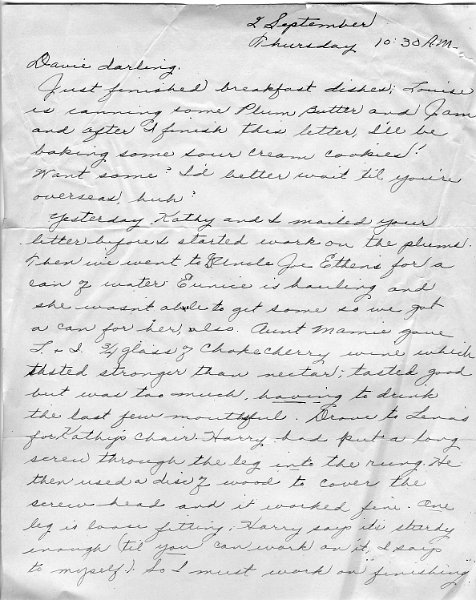 2 September
Thursday 10:30 A.M.
Davie darling:
Just finished breakfast dishes; Louise
is canning some Plum Butter and Jam
and after I finish this letter, I'll be
baking some sour cream cookies!
Want some? I'd better wait til you're
overseas, huh?
Yesterday Kathy and I mailed your
letter before I started work on the plums.
Then we went to Uncle Joe Ethens for a
can of water Eunice is hauling and
she wasn't able to get some so we got
a can for her, also. Aunt Mamie gave
L + I ¾ glass of Chokecherry wine which
tasted stronger than nectar; tasted good
but was too much, having to drink
the last few mouthsful. Drove to Lena's
for Kathy's chair. Harry had put a long
screw through the leg into the rung. He
then used a disc of wood to cover the
screw-head and it worked fine. One
leg is loose fitting; Harry says it's sturdy
enough (til you can work on it, I says
to myself). So I must work on finishing